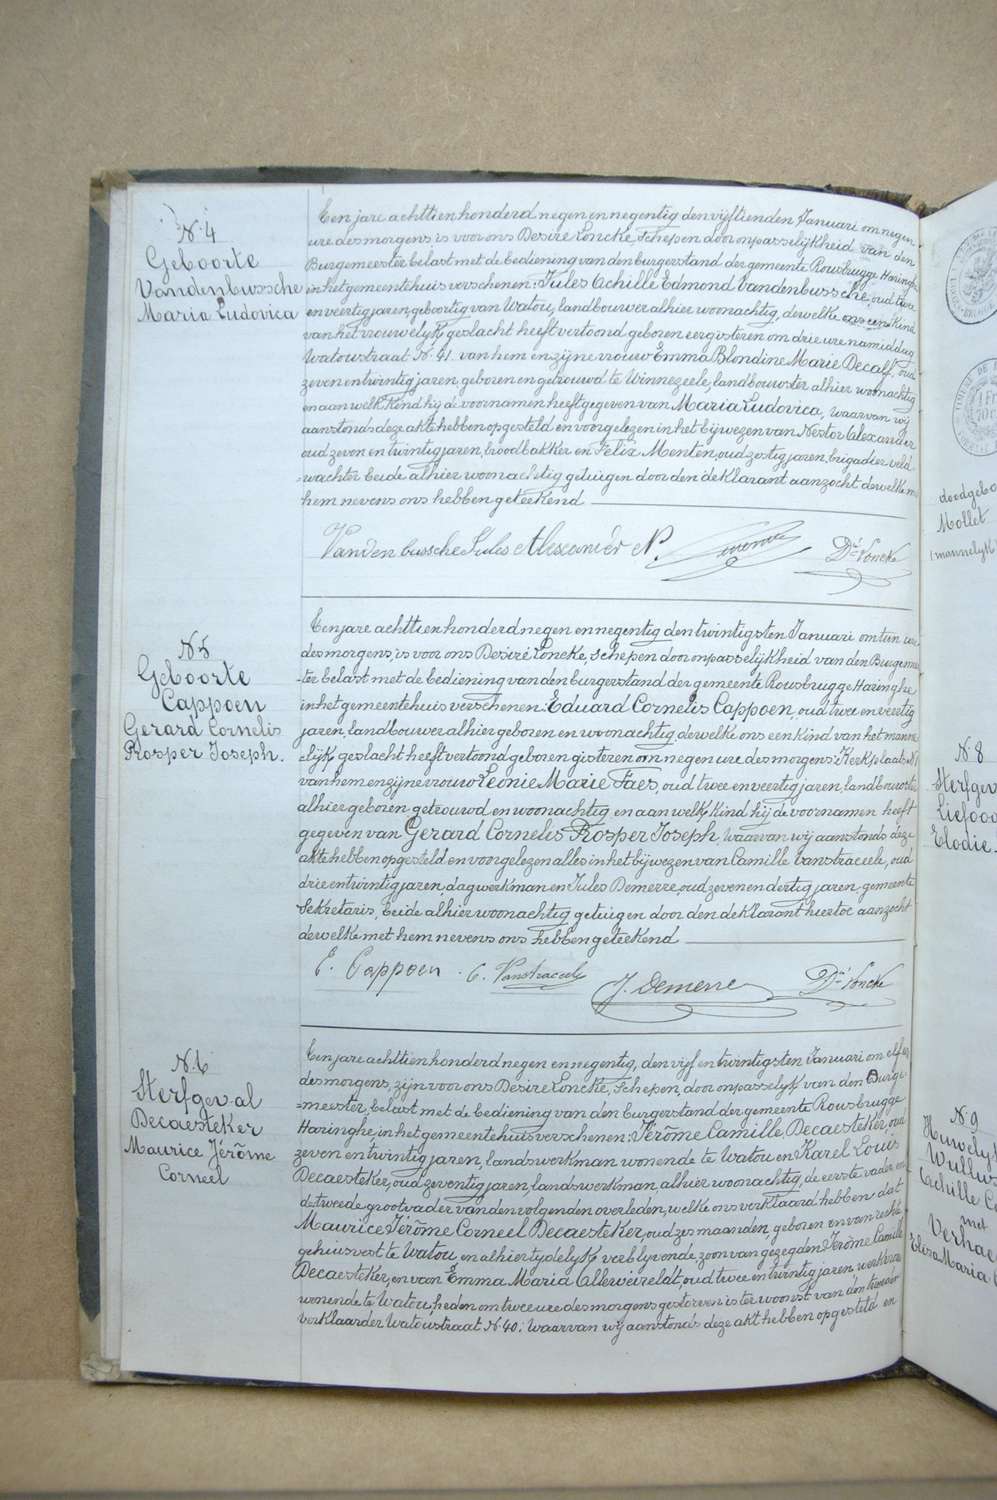 N. 4
Geboorte
Vandenbussche
Maria Ludovica
Een jare achttien honderd negen en negentig den vijftienden Januari om negen
ure des morgens is voor ons Desiré Loncke, Schepen door onpasselijkheid van den
Burgemeester belast met de bediening van den burgerstand der gemeente Rousbrugge Haringhe
in het gemeentehuis verschenen: Jules Achille Edmond Vandenbussche, oud twee
en veertig jaren, geboortig van Watou, landbouwer alhier woonachtig, dewelke ons een kind
van het vrouwelijk geslacht heeft vertoond geboren eergisteren om drie ure namiddag
Watoustraat N. 41. van hem en zijne vrouw Emma Blondine Marie Decalf, oud
zeven en twintig jaren, geboren en getrouwd te Winnezeele, landbouwster alhier woonachtig
en aan welk Kind hij de voornamen heeft gegeven van Maria Ludovica, waarvan wij
aanstonds deze akte hebben opgesteld en voorgelezen in het bijwezen van Nestor Alexander
oud zeven en twintig jaren, broodbakker en Felix Menten, oud zestig jaren, brigadier veld
=wachter beide alhier woonachtig getuigen door den deklarant aanzocht dewelke met
hem nevens ons hebben geteekend
Vandenbussche Jules Alexander N. Dé Loncke
N. 5
Geboorte
Cappoen
Gerard Cornelis
Prosper Joseph.
Een jare achttien honderd negen en negentig den twintigsten Januari om tien ure
des morgens, is voor ons Desiré Loncke, Schepen door onpasselijkheid van den Burgemee
=ter belast met de bediening van den burgerstand der gemeente Rousbrugge Haringhe
in het gemeentehuis verschenen: Eduard Cornelis Cappoen, oud twee en veertig
jaren, landbouwer alhier geboren en woonachtig dewelke ons een kind van het manne
=lijk geslacht heeft vertoond geboren gisteren om negen ure des morgens: Kerkplaats N. 1
van hem en zijne vrouw Leonie Marie Faes, oud twee en veertig jaren, landbouwster
alhier geboren getrouwd en woonachtig en aan welk kind hij de voornamen heeft
gegeven van Gerard Cornelis Prosper Joseph, waarvan wij aanstonds deze
akte hebben opgesteld en voorgelezen alles in het bijwezen van Camille Vanstraceele, oud
drie en twintig jaren, dagwerkman en Jules Demerre, oud zeven en dertig jaren, gemeente
Sekretaris, beide alhier woonachtig getuigen door den deklarant hiertoe aanzocht
dewelke met hem nevens ons hebben geteekend
E. Cappoen. C. Vanstraceele J. Demerre Dé Loncke
N. 6
Sterfgeval
Decaesteker
Maurice Jérôme
Corneel
Een jare achttien honderd negen en negentig, den vijf en twintigsten Januari om elf ure
des morgens, zijn voor ons Desiré Loncke, Schepen, door onpasselijk van den Burge
=meester, belast met de bediening van den burgerstand der gemeente Rousbrugge
Haringhe, in het gemeentehuis verschenen: Jérôme Camille Decaesteker, oud
zeven en twintig jaren, landswerkman wonende te Watou en Karel Louis
Decaesteker, oud zeventig jaren, landswerkman, alhier woonachtig, de eerste vader en
de tweede grootvader van den volgenden overleden, welke ons verklaard hebben dat
Maurice Jérôme Corneel Decaesteker, oud zes maanden, geboren en van recht
gehuisvest te Watou, en alhier tijdelijk verblijvende, zoon van gezegden Jérôme Camille
Decaesteker, en van Emma Maria Calleweireldt, oud twee en twintig jaren
wonende te Watou, heden om twee ure des morgens gestorven is ter woonst van den tweeden
verklaarder Watoustraat N. 40; waarvan wij aanstonds deze akt hebben opgesteld en
Mollet
N. 8
Elodie.
N. 9
met